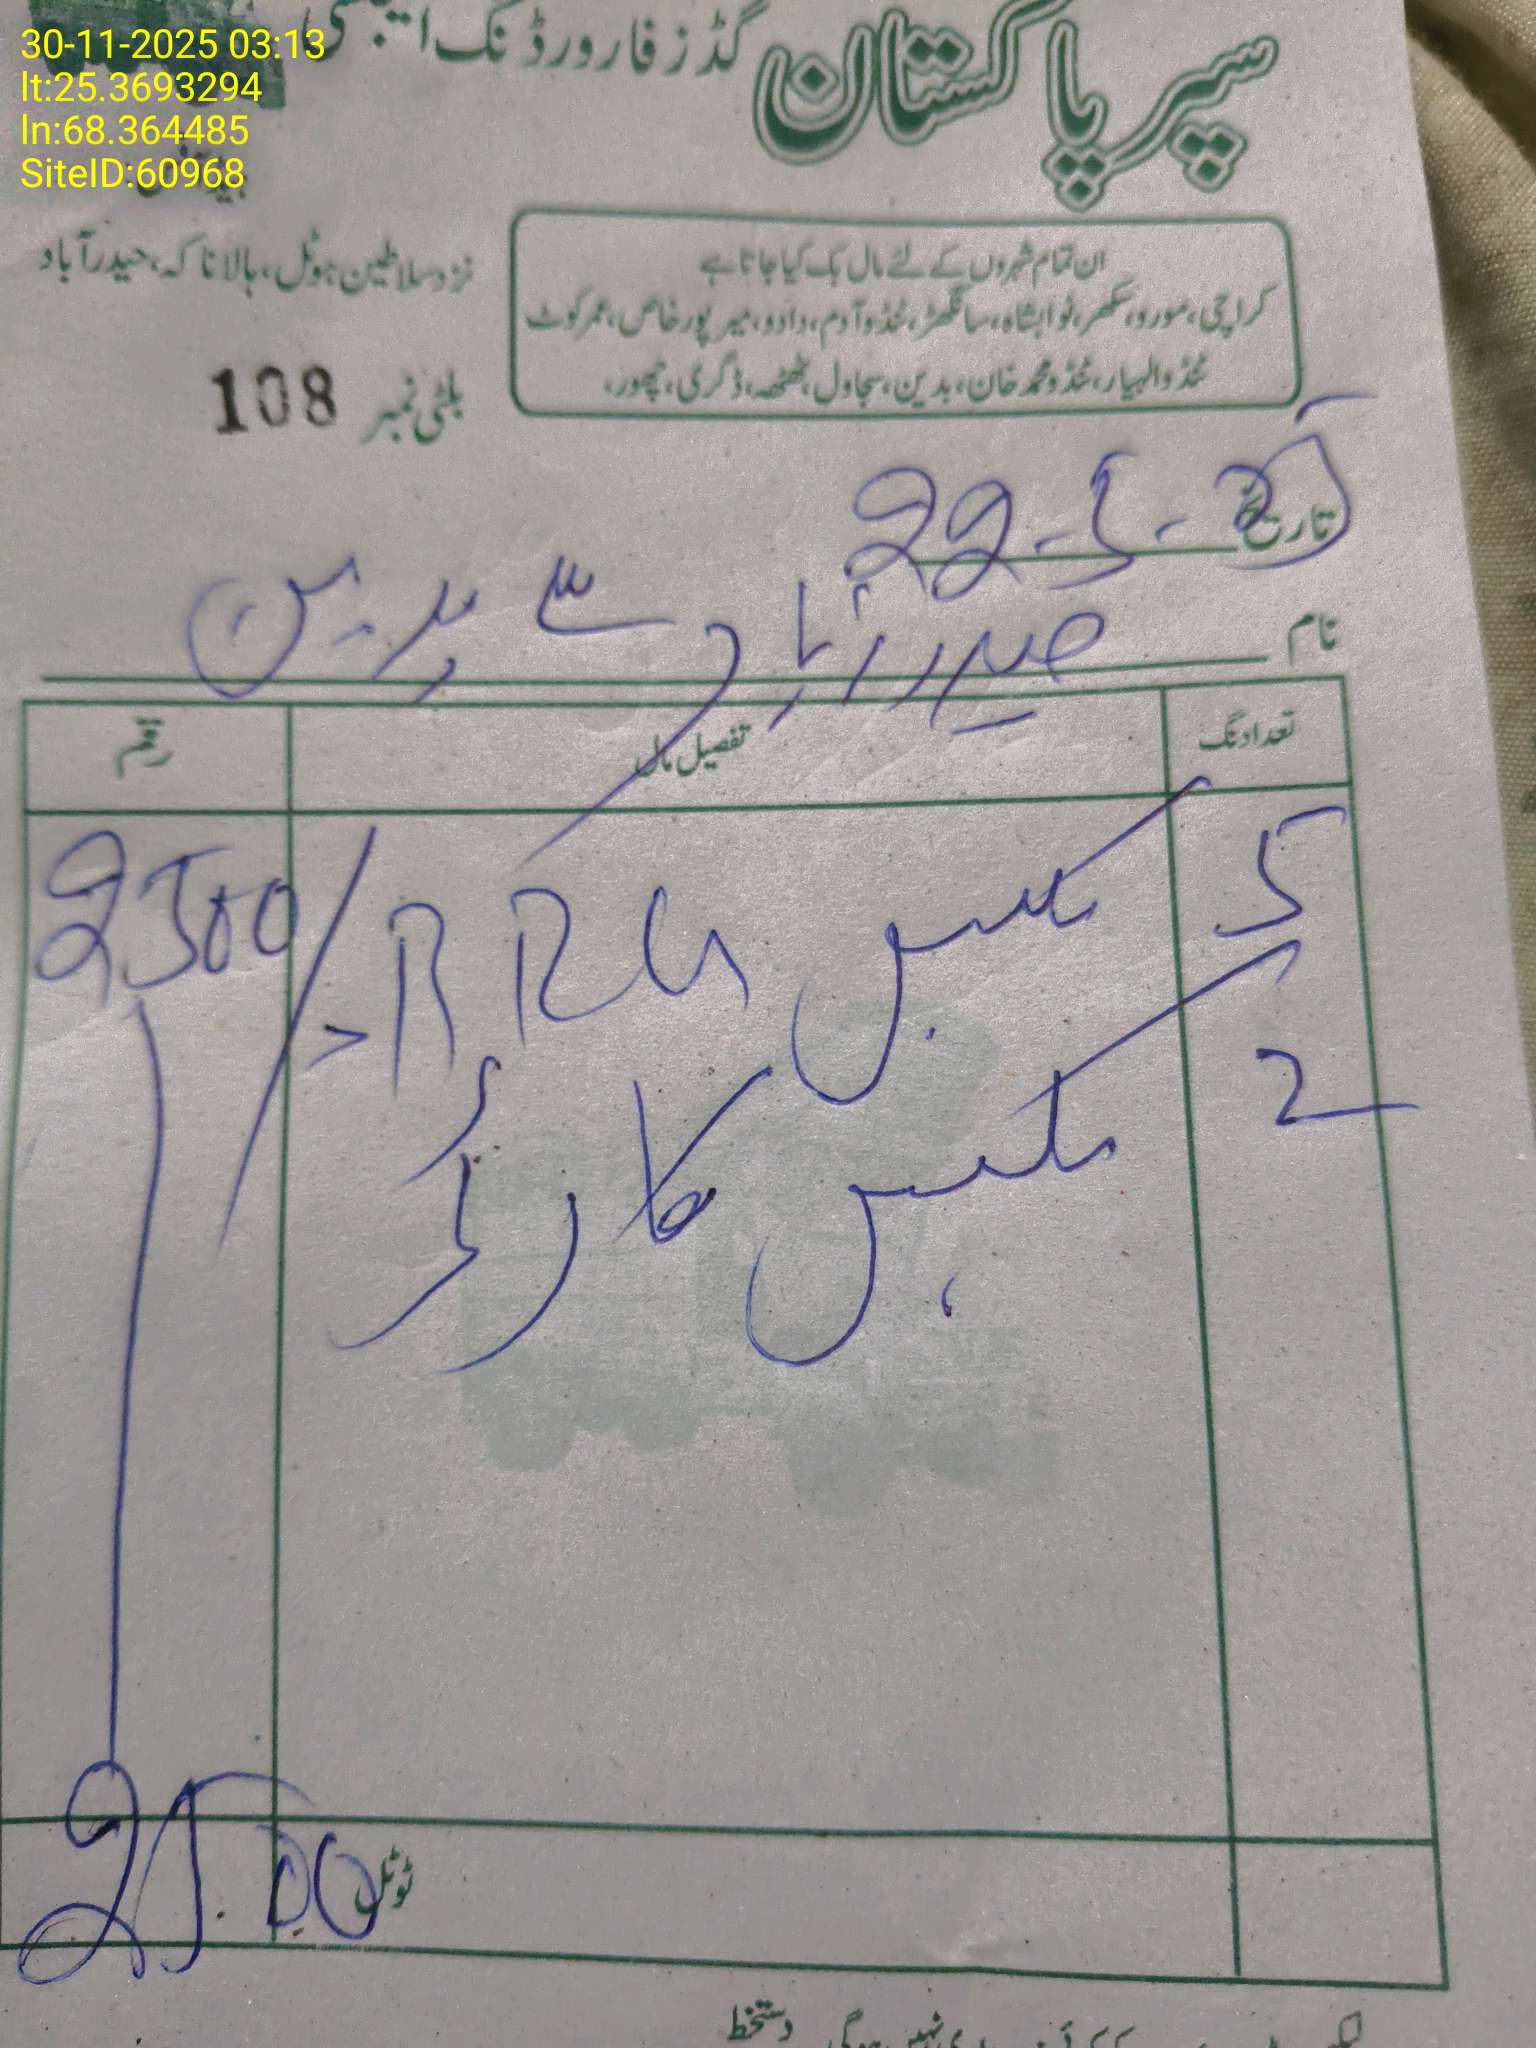 30-11-2025 03:13
lt:25.3693294
ln:68.364485
SiteID:60968
سپر پاکستان گڈز فارورڈنگ ایجنسی
نزد سلاطین ہوٹل، بالا ناکہ، حیدرآباد
ان تمام شہروں کے لئے مال بک کیا جاتا ہے
کراچی، مورو، سکھر، نوابشاہ، سانگھڑ، ٹنڈوآدم، دادو، میرپورخاص، عمرکوٹ
ٹنڈوالہیار، ٹنڈومحمدخان، بدین، سجاول، ٹھٹھہ، ڈگری، چھور،
بلٹی نمبر 108
تاریخ 22-5-25
نام حیدرآباد سے بدین
تعداد نگ تفصیل مال رقم
5 بکس RRU 2500/
2 بکس کارڈ
ٹوٹل 2500
دستخط